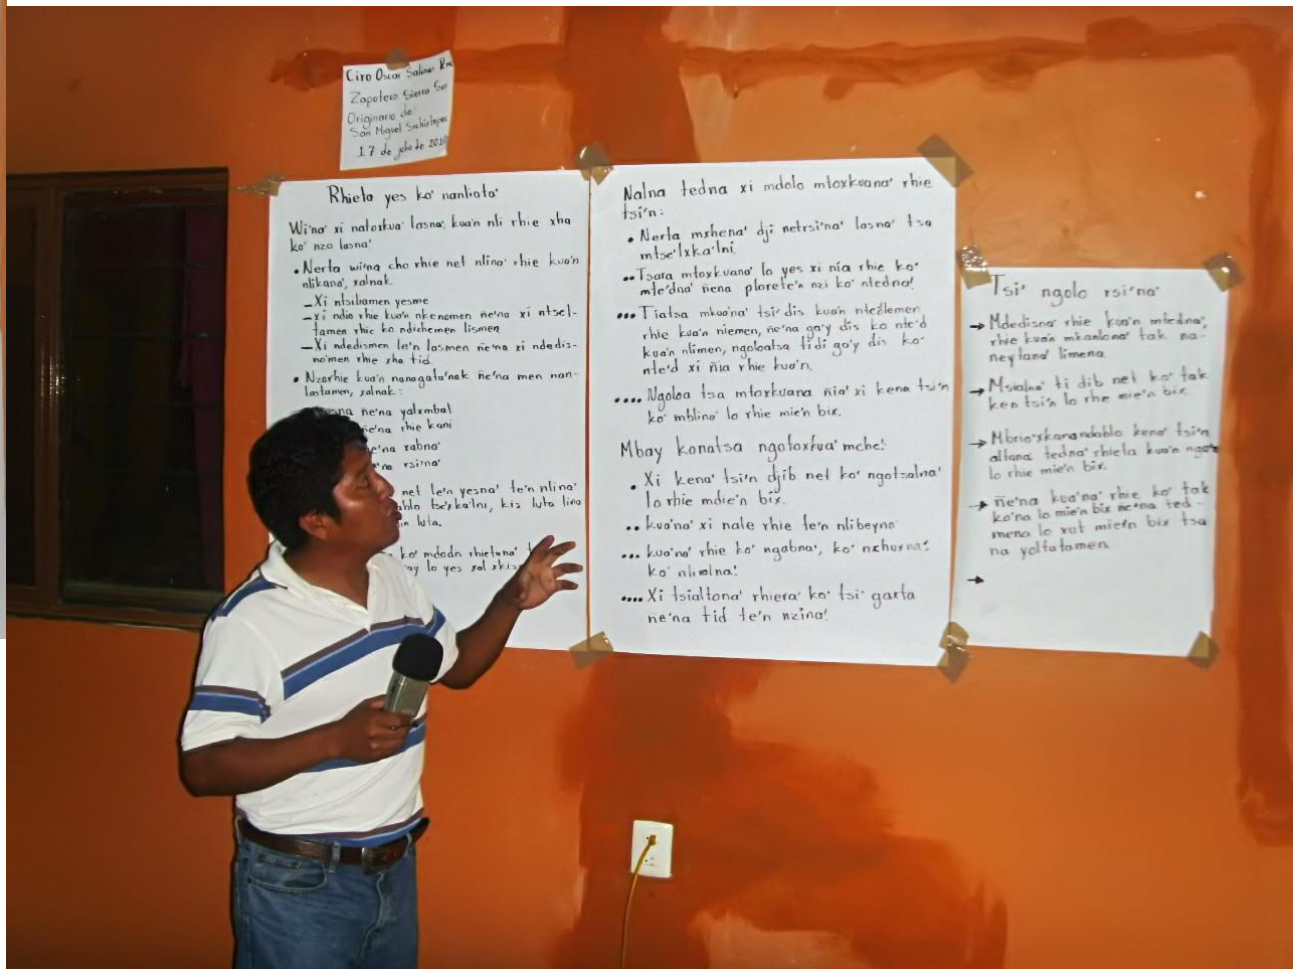 Ciro Oscar Salinas
Zapoteco Sierra Sur
Originario de:
San Miguel
17 de julio de 2010
Rhieta yes ko' nanliota'
Wi'na' xi natoxkua' lasna', kua'n nli rhie xha
ko' nzo lasna'
• Nerta wi'na cho rhie net nlina' rhie kua'n
nlikana', xalnak.
– Xi ntsibamen yesme
– xi ndio rhie kua'n nkenomen ñe'na xi ntsel-
tamen rhie ko ndichemen lismen
– Xi ndedismen le'n lasmen ñe'na xi ndedis-
no'men rhie xha tid
• Nzorhie kua'n nanagata'nak ñe'na men nan-
lastamen, xalnak:
ñe'na yalxmbal
rhie kani
xabna'
rsi'na'
net le'n yesna' te'n nlina'
tse'xka'lni, kis luta lina
luta.
ko' mdodn rhietana'
lo yes xal
Nalna tedna xi mdolo mtoxkuana' rhie
tsi'n:
• Nerta mxhena' dji netrsi'na' lasna' tsa
mtse'lxka'lni.
•• Tsara mtoxkuana' lo yes xi nía rhie ko'
mte'dna' ñena plorete'n nzi ko' ntedna!
••• Tiatsa mkua'na' tsi' dis kua'n ntedlemen
rhie kua'n niemen, ñe'na ga'y dis ko nte'd
kua'n nlimen, ngoloatsa tidi ga'y dis ko'
nte'd xi ñia rhie kua'n.
•••• Ngoloa tsa mtoxkuana ñia' xi kena tsi'n
ko' mblina' lo rhie mie'n bix.
Mbay konatsa ngotoxkua' mche!
• Xi kena' tsi'n djib net ko' ngotsalna'
lo rhie mdie'n bix.
•• kua'na' xi nale rhie te'n nlibeyna
••• kua'na' rhie ko' ngabna', ko' nxhuxna',
ko' nlixolna!
•••• Xi tsialtona' rhiera' ko' tsi' garta
ñe'na tid te'n nzina!
Tsi' ngolo rsi'na'
→ Mdedisna' rhie kua'n mtedna',
rhie kua'n mkanlona' tak na-
neytana' limena.
→ Msialna' ti dib net ko' tak
ken tsi'n lo rhe mie'n bix.
→ Mbrie'xkanandablo kena' tsi'n
altana' tedna' rhieta kua'n
lo rhie mie'n bix.
→ ñe'na kua'na' rhie ko' tak
ko'na lo mie'n bix ñe'na ted-
mena lo xut mie'n bix tsa
na yoltatamen.
→